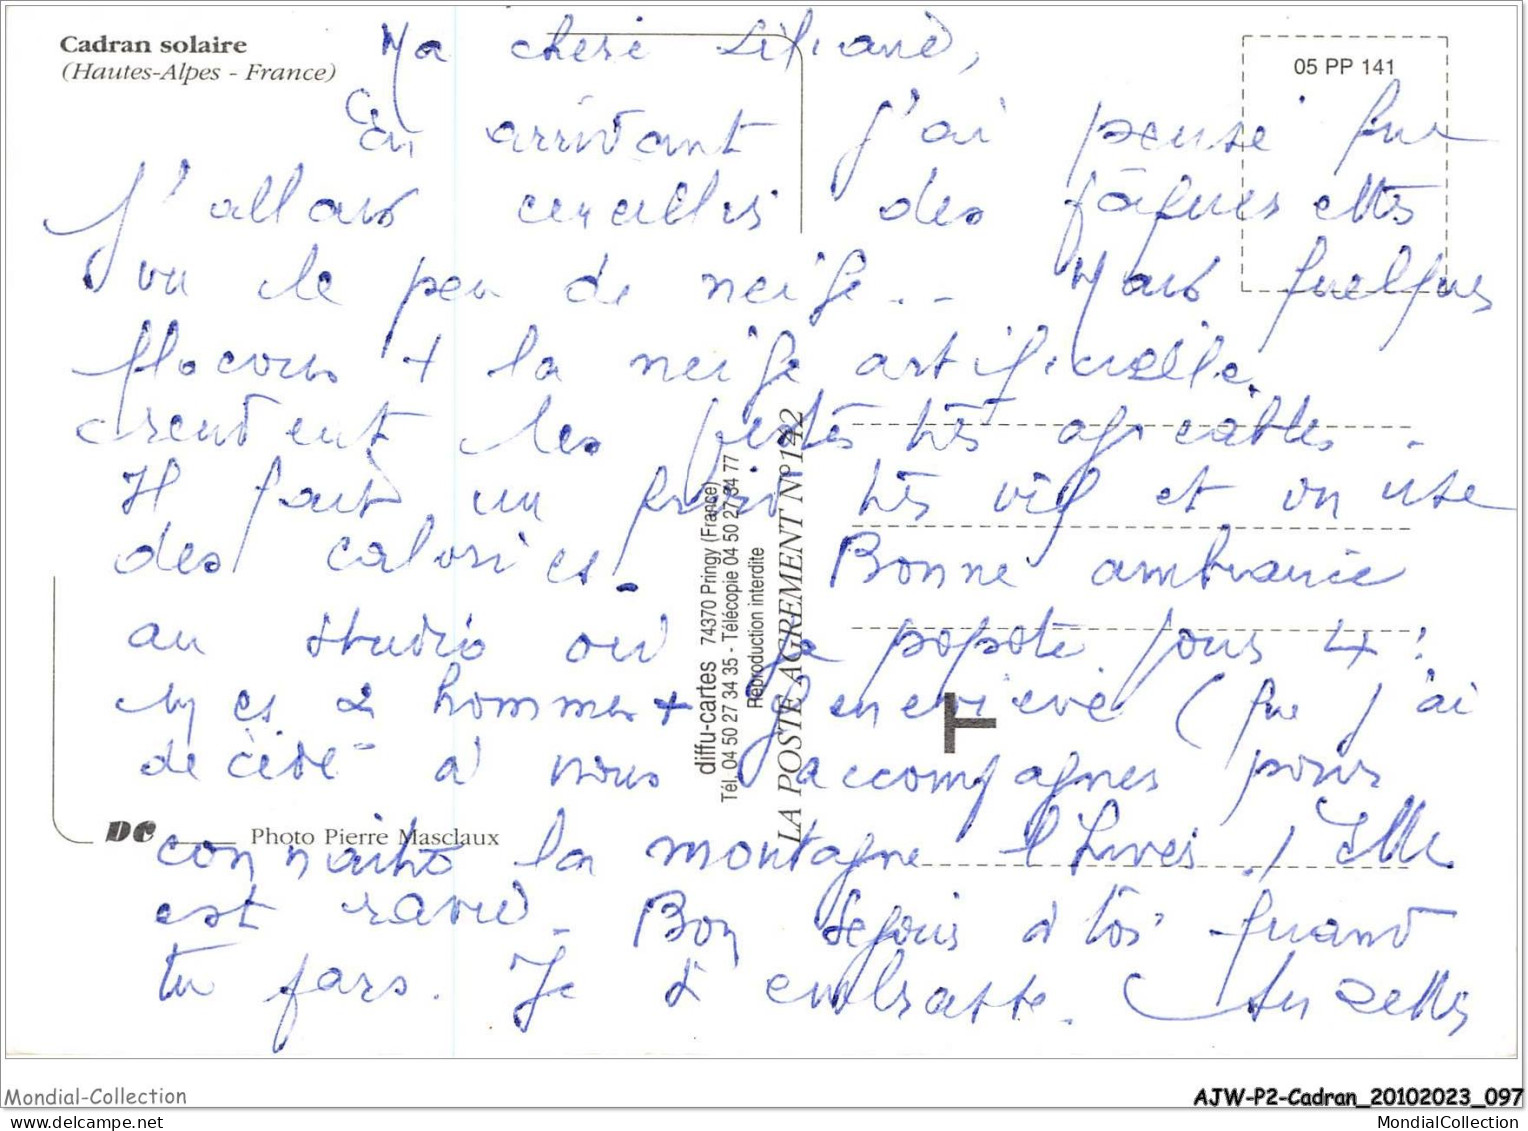 Cadran solaire
(Hautes-Alpes - France)
05 PP 141
Ma chère Liliane,
En arrivant j'ai pensé que
j'allais cueillir des pâquerettes
vu le peu de neige... Mais quelques
flocons + la neige artificielle
rendent les pistes très agréables.
Il fait un froid très vif et on use
des calories. Bonne ambiance
au studio où je popote pour 4 :
mes 2 hommes + Geneviève (que j'ai
décidé à nous accompagner pour
connaître la montagne l'hiver) Elle
est ravie. Bon séjour à toi quand
tu fais. Je t'embrasse.
diffu-cartes 74370 Pringy (France)
Tél. 04 50 27 34 35 - Télécopie 04 50 27 34 77
Reproduction interdite
LA POSTE AGREMENT N°142
T
DC
Photo Pierre Masclaux
Mondial-Collection
AJW-P2-Cadran_20102023_097
MondialCollection